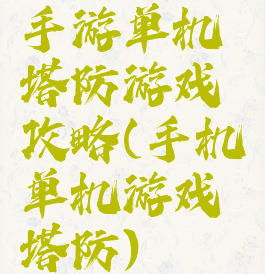 手游单机
塔防游戏
攻略(手机
单机游戏
塔防)